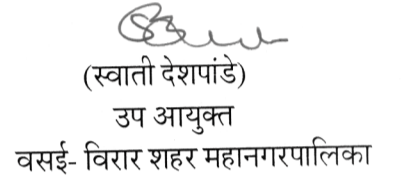 (स्वाती देशपांडे)
उप आयुक्त
वसई- विरार शहर महानगरपालिका